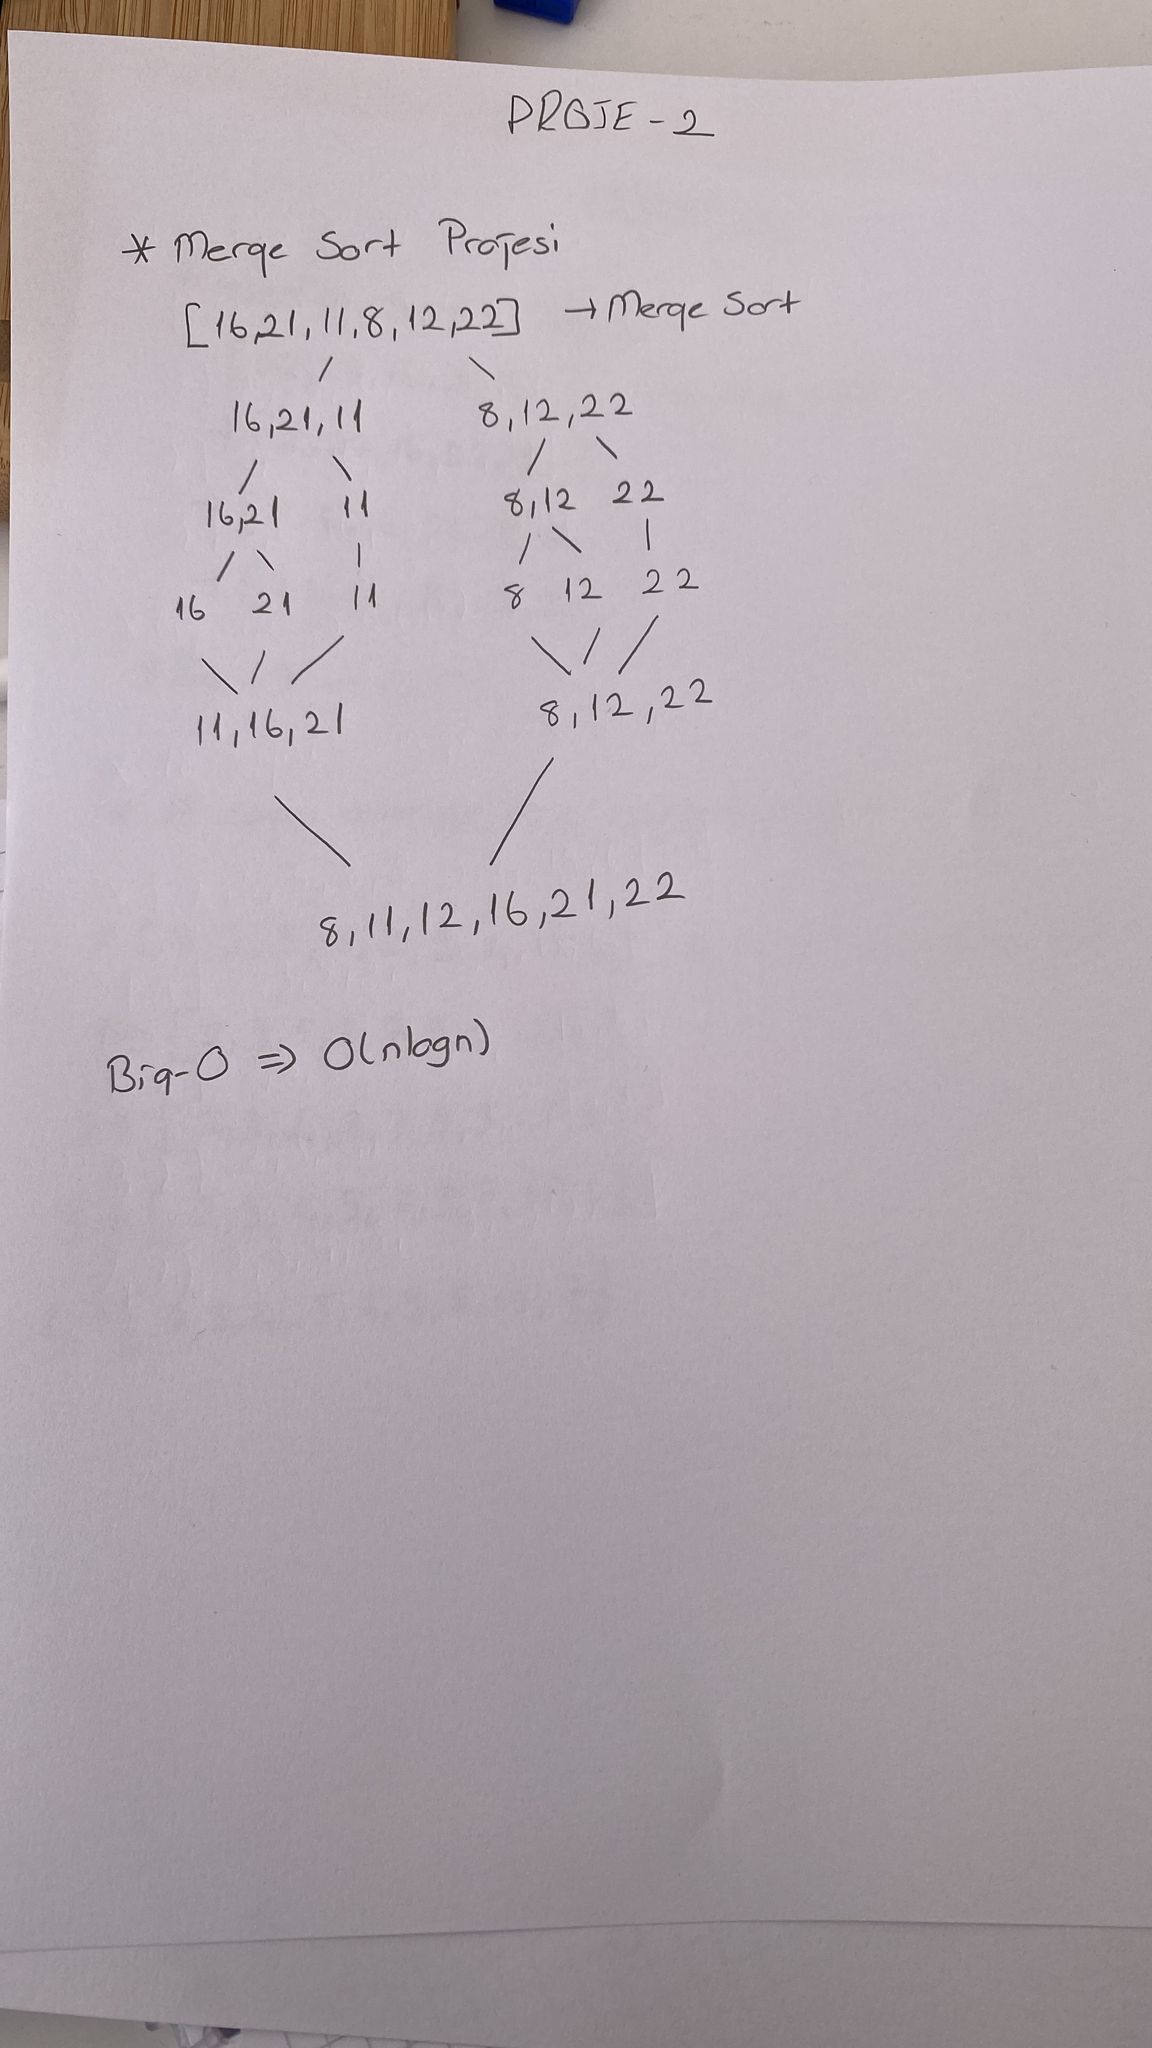 PROJE - 2
* Merge Sort Projesi
[16,21,11,8,12,22] → Merge Sort
16,21,11 8,12,22
16,21 11 8,12 22
16 21 11 8 12 22
11,16,21 8,12,22
8,11,12,16,21,22
Big-O ⇒ O(nlogn)